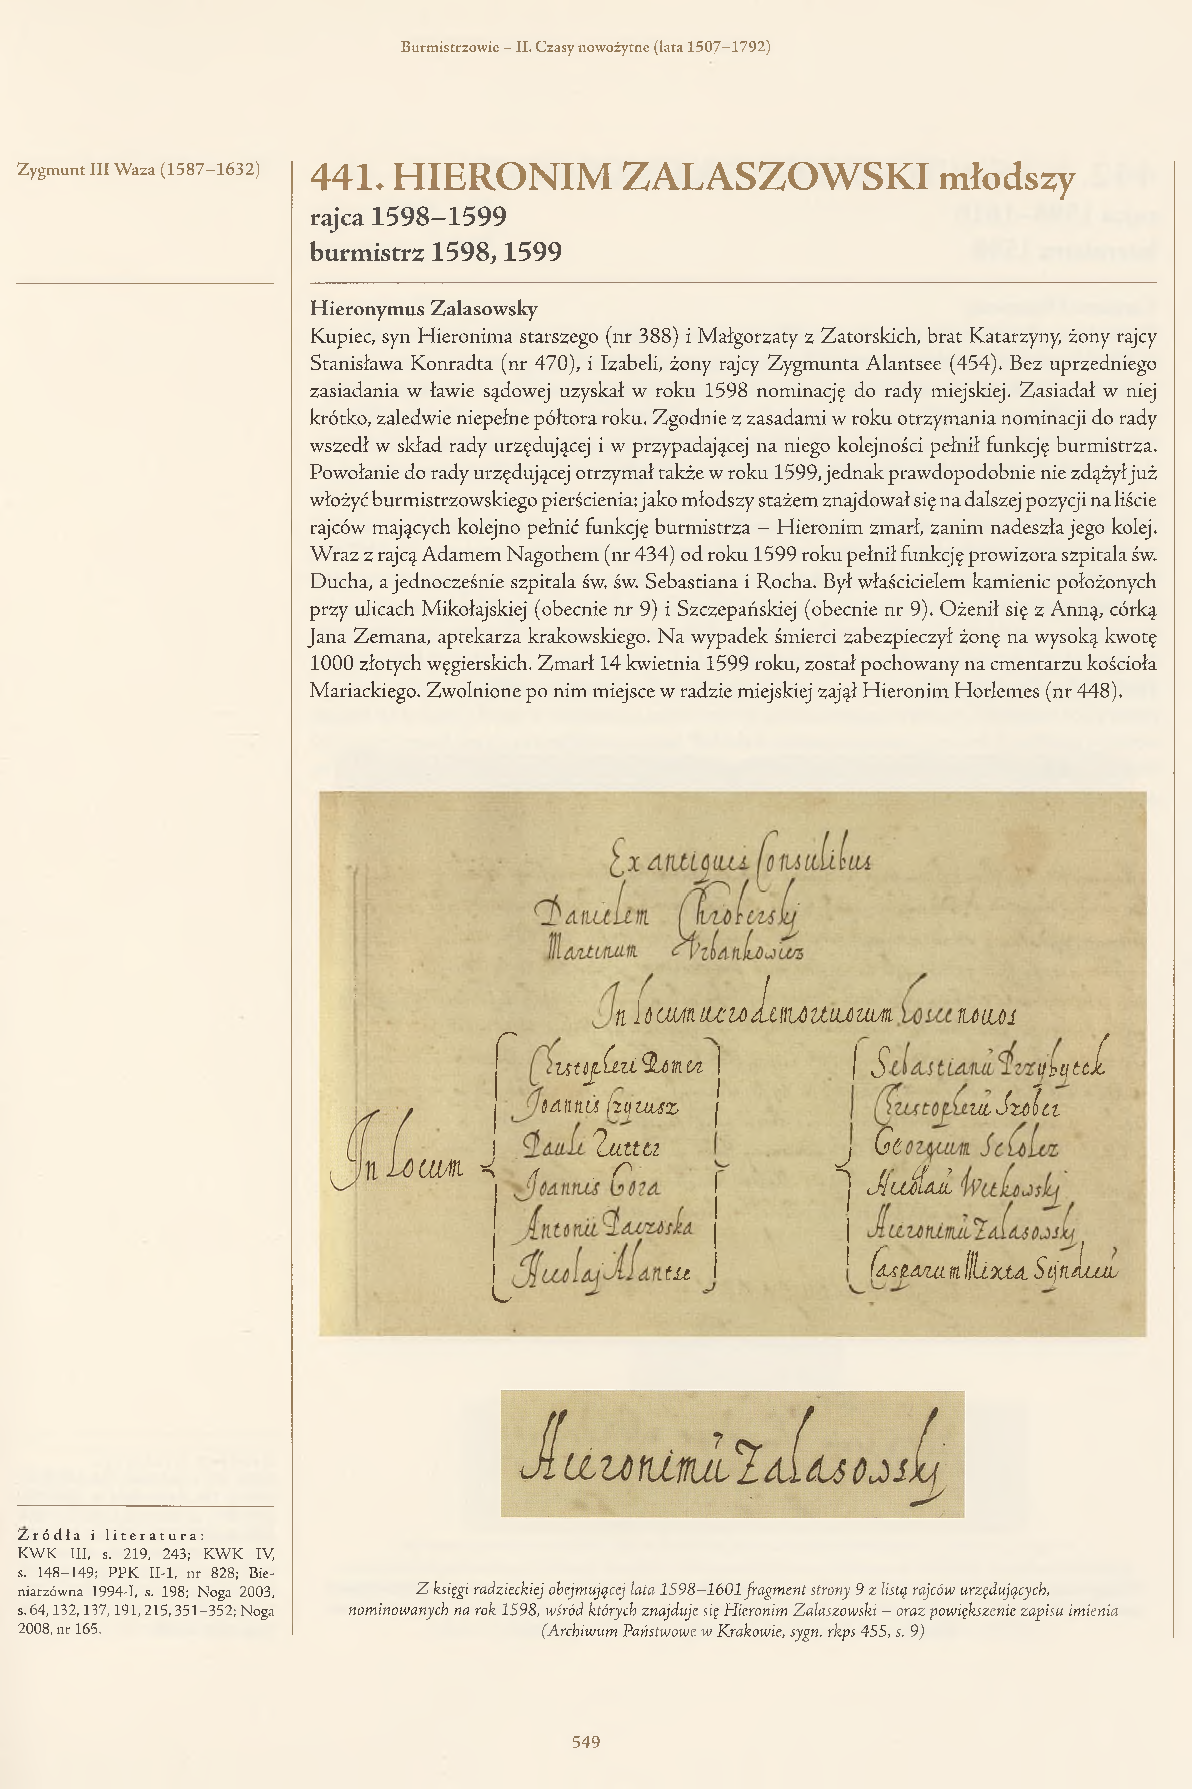 Burmistrzowie – II. Czasy nowożytne (lata 1507–1792)
Zygmunt III Waza (1587–1632)
441. HIERONIM ZALASZOWSKI młodszy
rajca 1598–1599
burmistrz 1598, 1599
Hieronymus Zalasowsky
Kupiec, syn Hieronima starszego (nr 388) i Małgorzaty z Zatorskich, brat Katarzyny, żony rajcy
Stanisława Konradta (nr 470), i Izabeli, żony rajcy Zygmunta Alantsee (454). Bez uprzedniego
zasiadania w ławie sądowej uzyskał w roku 1598 nominację do rady miejskiej. Zasiadał w niej
krótko, zaledwie niepełne półtora roku. Zgodnie z zasadami w roku otrzymania nominacji do rady
wszedł w skład rady urzędującej i w przypadającej na niego kolejności pełnił funkcję burmistrza.
Powołanie do rady urzędującej otrzymał także w roku 1599, jednak prawdopodobnie nie zdążył już
włożyć burmistrzowskiego pierścienia: jako młodszy stażem znajdował się na dalszej pozycji na liście
rajców mających kolejno pełnić funkcję burmistrza – Hieronim zmarł, zanim nadeszła jego kolej.
Wraz z rajcą Adamem Nagothem (nr 434) od roku 1599 roku pełnił funkcję prowizora szpitala św.
Ducha, a jednocześnie szpitala św. św. Sebastiana i Rocha. Był właścicielem kamienic położonych
przy ulicach Mikołajskiej (obecnie nr 9) i Szczepańskiej (obecnie nr 9). Ożenił się z Anną, córką
Jana Zemana, aptekarza krakowskiego. Na wypadek śmierci zabezpieczył żonę na wysoką kwotę
1000 złotych węgierskich. Zmarł 14 kwietnia 1599 roku, został pochowany na cmentarzu kościoła
Mariackiego. Zwolnione po nim miejsce w radzie miejskiej zajął Hieronim Horlemes (nr 448).
Ex antiquis Consulibus
Danielem Chrobersky
Martinum Vrbankowicz
In locum vero demortuorum hosce nouos
In locum
Christopheri Romer
Joannis
Pauli Zutter
Joannis Goza
Antonii Paczoska
Nicolaj Alantse
Sebastianū Przybyteck
Christopherū Szober
Georgium Scholcz
Nicolaū Witkowskj
Hieronimū Zalasowskj
Casparum Mixta Syndicū
Hieronimū Zalasowskj
Źródła i literatura:
KWK III, s. 219, 243; KWK IV,
s. 148–149; PPK II-1, nr 828; Bie-
niarzówna 1994-I, s. 198; Noga 2003,
s. 64, 132, 137, 191, 215, 351–352; Noga
2008, nr 165.
Z księgi radzieckiej obejmującej lata 1598–1601 fragment strony 9 z listą rajców urzędujących,
nominowanych na rok 1598, wśród których znajduje się Hieronim Zalaszowski – oraz powiększenie zapisu imienia
(Archiwum Państwowe w Krakowie, sygn. rkps 455, s. 9)
549